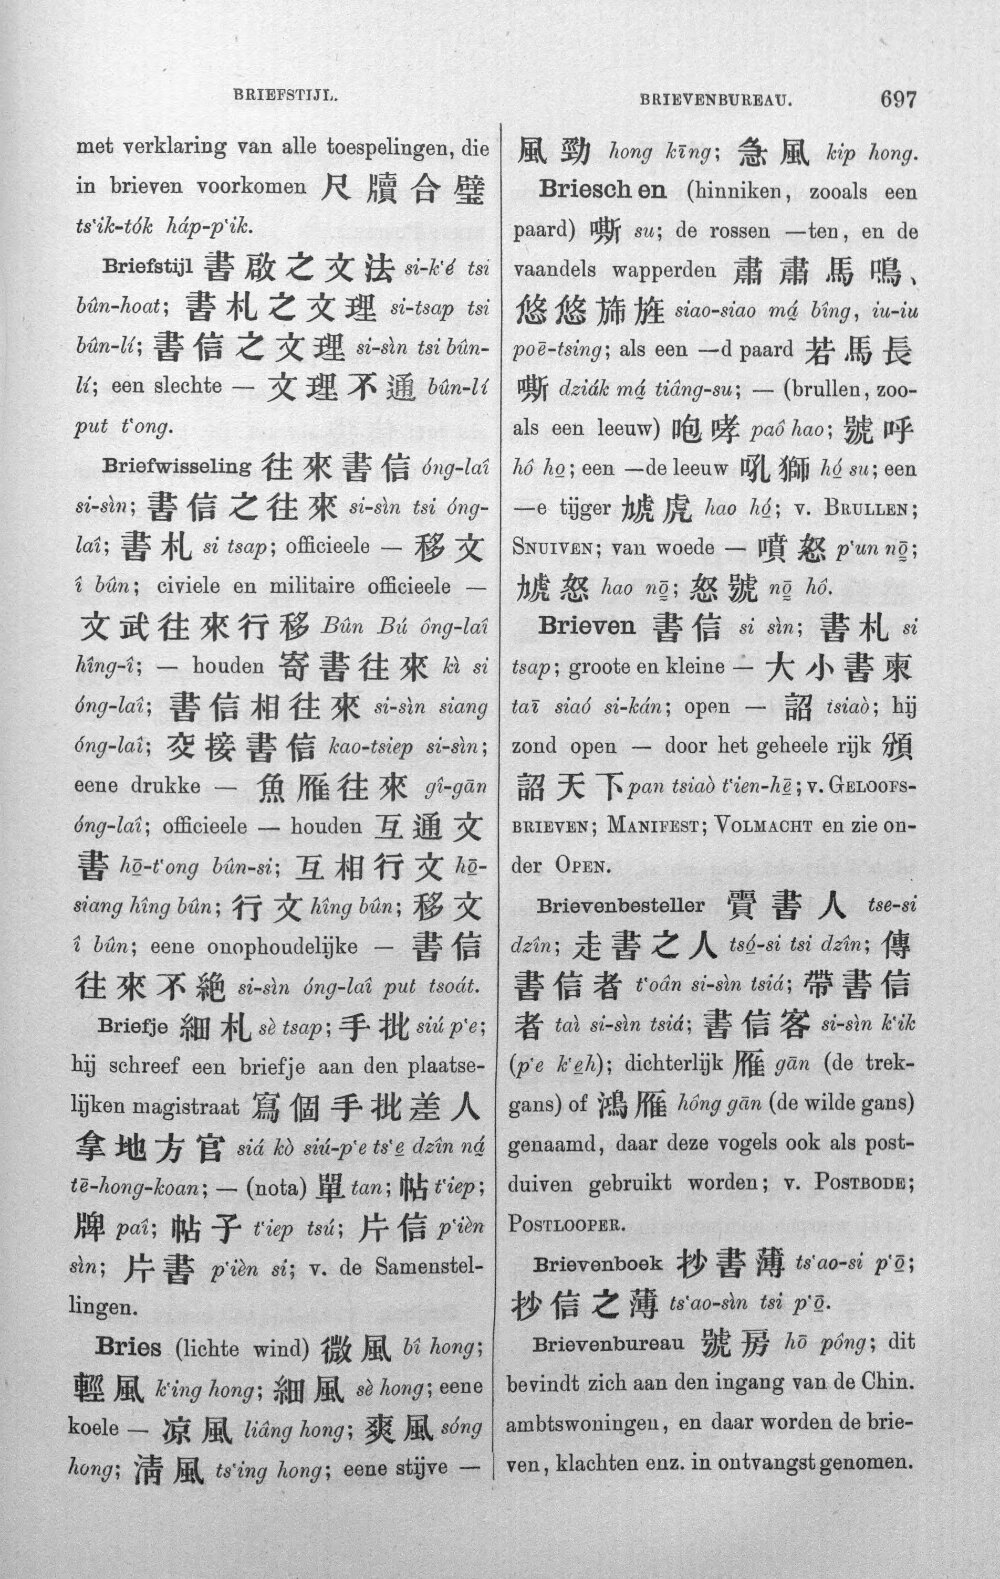 BRIEFSTIJL.
BRIEVENBUREAU. 697
met verklaring van alle toespelingen, die
in brieven voorkomen 尺牘合璧
ts‘ik-tók háp-p‘ik.
Briefstijl 書啟之文法 si-k‘é tsi
bûn-hoat; 書札之文理 si-tsap tsi
bûn-lí; 書信之文理 si-sìn tsi bûn-
lí; een slechte — 文理不通 bûn-lí
put t‘ong.
Briefwisseling 往來書信 óng-laî
si-sìn; 書信之往來 si-sìn tsi óng-
laî; 書札 si tsap; officieele — 移文
î bûn; civiele en militaire officieele —
文武往來行移 Bûn Bú óng-laî
hîng-î; — houden 寄書往來 kì si
óng-laî; 書信相往來 si-sìn siang
óng-laî; 交接書信 kao-tsiep si-sìn;
eene drukke — 魚雁往來 gî-gān
óng-laî; officieele — houden 互通文
書 hō̤-t‘ong bûn-si; 互相行文 hō̤-
siang hîng bûn; 行文 hîng bûn; 移文
î bûn; eene onophoudelijke — 書信
往來不絕 si-sìn óng-laî put tsoát.
Briefje 細札 sè tsap; 手批 siú p‘e;
hij schreef een briefje aan den plaatse-
lijken magistraat 寫個手批差人
拿地方官 siá kò siú-p‘e ts‘e̤ dzîn ná̤
tē-hong-koan; — (nota) 單 tan; 帖 t‘iep;
牌 paî; 帖子 t‘iep tsú; 片信 p‘ièn
sìn; 片書 p‘ièn si; v. de Samenstel-
lingen.
Bries (lichte wind) 微風 bî hong;
輕風 k‘ing hong; 細風 sè hong; eene
koele — 凉風 liâng hong; 爽風 sóng
hong; 清風 ts‘ing hong; eene stijve —
風勁 hong kīng; 急風 kip hong.
Brieschen (hinniken, zooals een
paard) 嘶 su; de rossen —ten, en de
vaandels wapperden 肅肅馬鳴、
悠悠旆旌 siao-siao má̤ bîng, iu-iu
poē-tsing; als een —d paard 若馬長
嘶 dziák má̤ tiâng-su; — (brullen, zoo-
als een leeuw) 咆哮 paô hao; 號呼
hô ho̤; een —de leeuw 吼獅 hó̤ su; een
—e tijger 虓虎 hao hó̤; v. BRULLEN;
SNUIVEN; van woede — 噴怒 p‘un nō̤;
虓怒 hao nō̤; 怒號 nō̤ hô.
Brieven 書信 si sìn; 書札 si
tsap; groote en kleine — 大小書柬
taī siaó si-kán; open — 詔 tsiaò; hij
zond open — door het geheele rijk 頒
詔天下 pan tsiaò t‘ien-hē̤; v. GELOOFS-
BRIEVEN; MANIFEST; VOLMACHT en zie on-
der OPEN.
Brievenbesteller 賷書人 tse-si
dzîn; 走書之人 tsó̤-si tsi dzîn; 傳
書信者 t‘oân si-sìn tsiá; 帶書信
者 taì si-sìn tsiá; 書信客 si-sìn k‘ik
(p‘e k‘e̤h); dichterlijk 雁 gān (de trek-
gans) of 鴻雁 hông gān (de wilde gans)
genaamd, daar deze vogels ook als post-
duiven gebruikt worden; v. POSTBODE;
POSTLOOPER.
Brievenboek 抄書薄 ts‘ao-si p‘ō̤;
抄信之薄 ts‘ao-sìn tsi p‘ō̤.
Brievenbureau 號房 hō póng; dit
bevindt zich aan den ingang van de Chin.
ambtswoningen, en daar worden de brie-
ven, klachten enz. in ontvangst genomen.